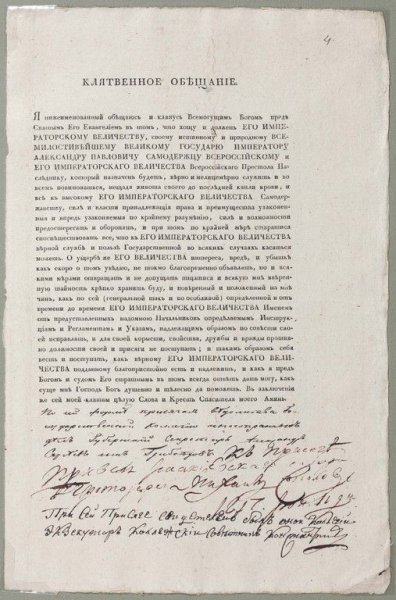 4.
КЛЯТВЕННОЕ ОБѢЩАНІЕ.
Я нижеименованный обѣщаюсь и клянусь Всемогущимъ Богомъ предъ
Святымъ Его Евангеліемъ въ томъ, что хощу и долженъ ЕГО ИМПЕ-
РАТОРСКОМУ ВЕЛИЧЕСТВУ, своему истинному и природному ВСЕ-
МИЛОСТИВѢЙШЕМУ ВЕЛИКОМУ ГОСУДАРЮ ИМПЕРАТОРУ
АЛЕКСАНДРУ ПАВЛОВИЧУ САМОДЕРЖЦУ ВСЕРОССІЙСКОМУ и
ЕГО ИМПЕРАТОРСКАГО ВЕЛИЧЕСТВА Всероссійскаго Престола На-
слѣднику, который назначенъ будетъ, вѣрно и нелицемѣрно служить и во
всемъ повиноваться, нещадя живота своего до послѣдней капли крови, и
всѣ къ высокому ЕГО ИМПЕРАТОРСКАГО ВЕЛИЧЕСТВА Самодер-
жавству, силѣ и власти принадлежащія права и преимущества узаконен-
ныя и впредь узаконяемыя по крайнему разумѣнію, силѣ и возможности
предостерегать и оборонять, и при томъ по крайней мѣрѣ старатися
споспѣшествовать все, что къ ЕГО ИМПЕРАТОРСКАГО ВЕЛИЧЕСТВА
вѣрной службѣ и пользѣ Государственной во всякихъ случаяхъ касаться
можетъ. О ущербѣ же ЕГО ВЕЛИЧЕСТВА интереса, вредѣ, и убыткѣ
какъ скоро о томъ увѣдаю, не токмо благовременно объявлять, но и вся-
кими мѣрами отвращать и не допущать тщатися и всякую мнѣ ввѣрен-
ную тайность крѣпко хранить буду, и повѣренный и положенный на мнѣ
чинъ, какъ по сей (генеральной такъ и по особливой) опредѣленной и отъ
времени до времени ЕГО ИМПЕРАТОРСКАГО ВЕЛИЧЕСТВА Именемъ
отъ предуставленныхъ надомною Начальниковъ опредѣляемымъ Инструк-
ціямъ и Регламентамъ и Указамъ, надлежащимъ образомъ по совѣсти сво-
ей исправлять, и для своей корысти, свойства, дружбы и вражды против-
но должности своей и присяги не поступать; и такимъ образомъ себя
весть и поступать, какъ вѣрному ЕГО ИМПЕРАТОРСКАГО ВЕЛИ-
ЧЕСТВА подданному благопристойно есть и надлежитъ, и какъ я предъ
Богомъ и судомъ Его страшнымъ въ томъ всегда отвѣтъ дать могу, какъ
суще мнѣ Господь Богъ душевно и тѣлесно да поможетъ. Въ заключеніи
же сей моей клятвы цѣлую Слова и Крестъ Спасителя моего. Аминь.
По сей формѣ присягалъ
Коллегіи
Губернскій Секретарь Александръ
Сергѣевъ сынъ Грибоѣдовъ. Къ присягѣ
приводилъ
При сей присягѣ свидѣтелемъ былъ оной Коллегіи
Экзекуторъ Коллежскій Совѣтникъ